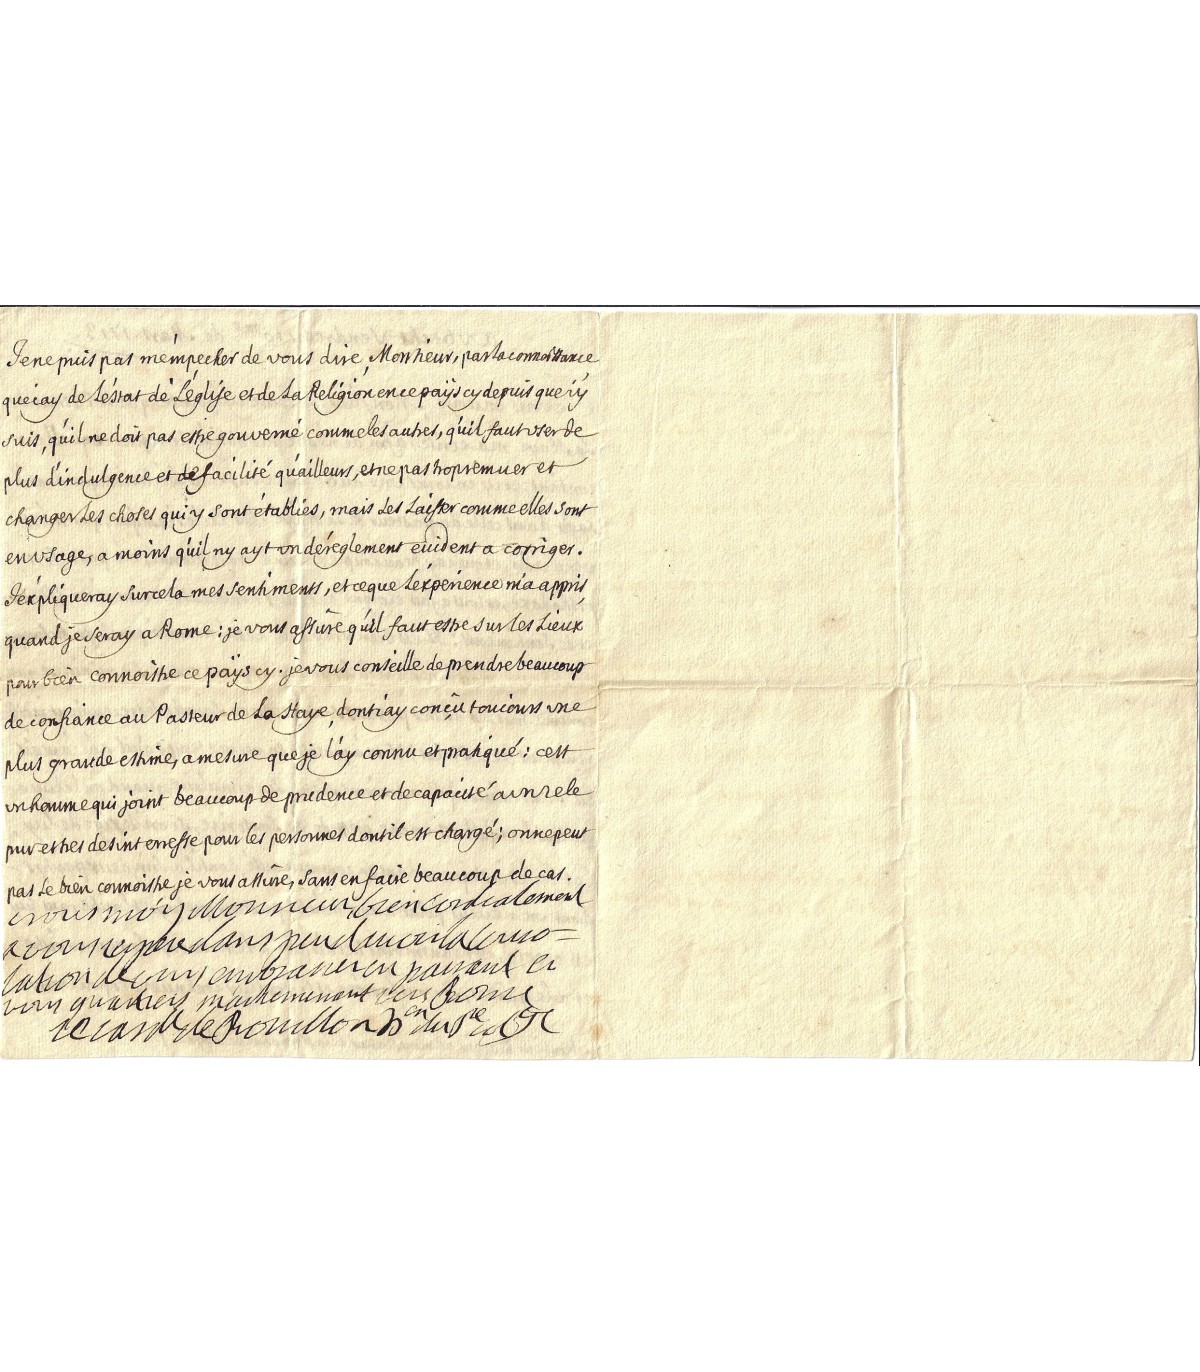 Je ne puis pas m'émpecher de vous dire, Monsieur, par la connoissance
que j'ay de L'éstat de L'église et de La Religion en ce païs cy depuis que j'y
suis, qu'il ne doit pas estre gouverné comme les autres, qu'il faut vser de
plus d'indulgence et de facilité qu'ailleurs, et ne pas trop remuer et
changer Les choses qui y sont établiés, mais Les Laisser comme elles sont
en vsage, a moins qu'il n'y ayt vn déréglement euident a corriger.
J'expliqueray sur cela mes sentiments, et ce que L'éxperience m'a appris,
quand je seray a Rome : je vous assûre qu'il faut estre sur les Lieux
pour bien connoistre ce païs cy. je vous conseille de prendre beaucoup
de confiance au Pasteur de La Haye, dont j'ay conçû toujours vne
plus grande estime, a mesure que je l'ay connu et pratiqué : c'est
vn homme qui joint beaucoup de prudence et de capacité a vn zele
pur et tres desinterressé pour les personnes dont il est chargé ; on ne peut
pas Le bien connoistre je vous assûre, sans en faire beaucoup de cas.
croiés moy Monsieur, bien cordialement
a vous dans peu la conso=
lation de vous embrasser en passant et
vous Rome
le card. de Bouillon Doyen du s. col.